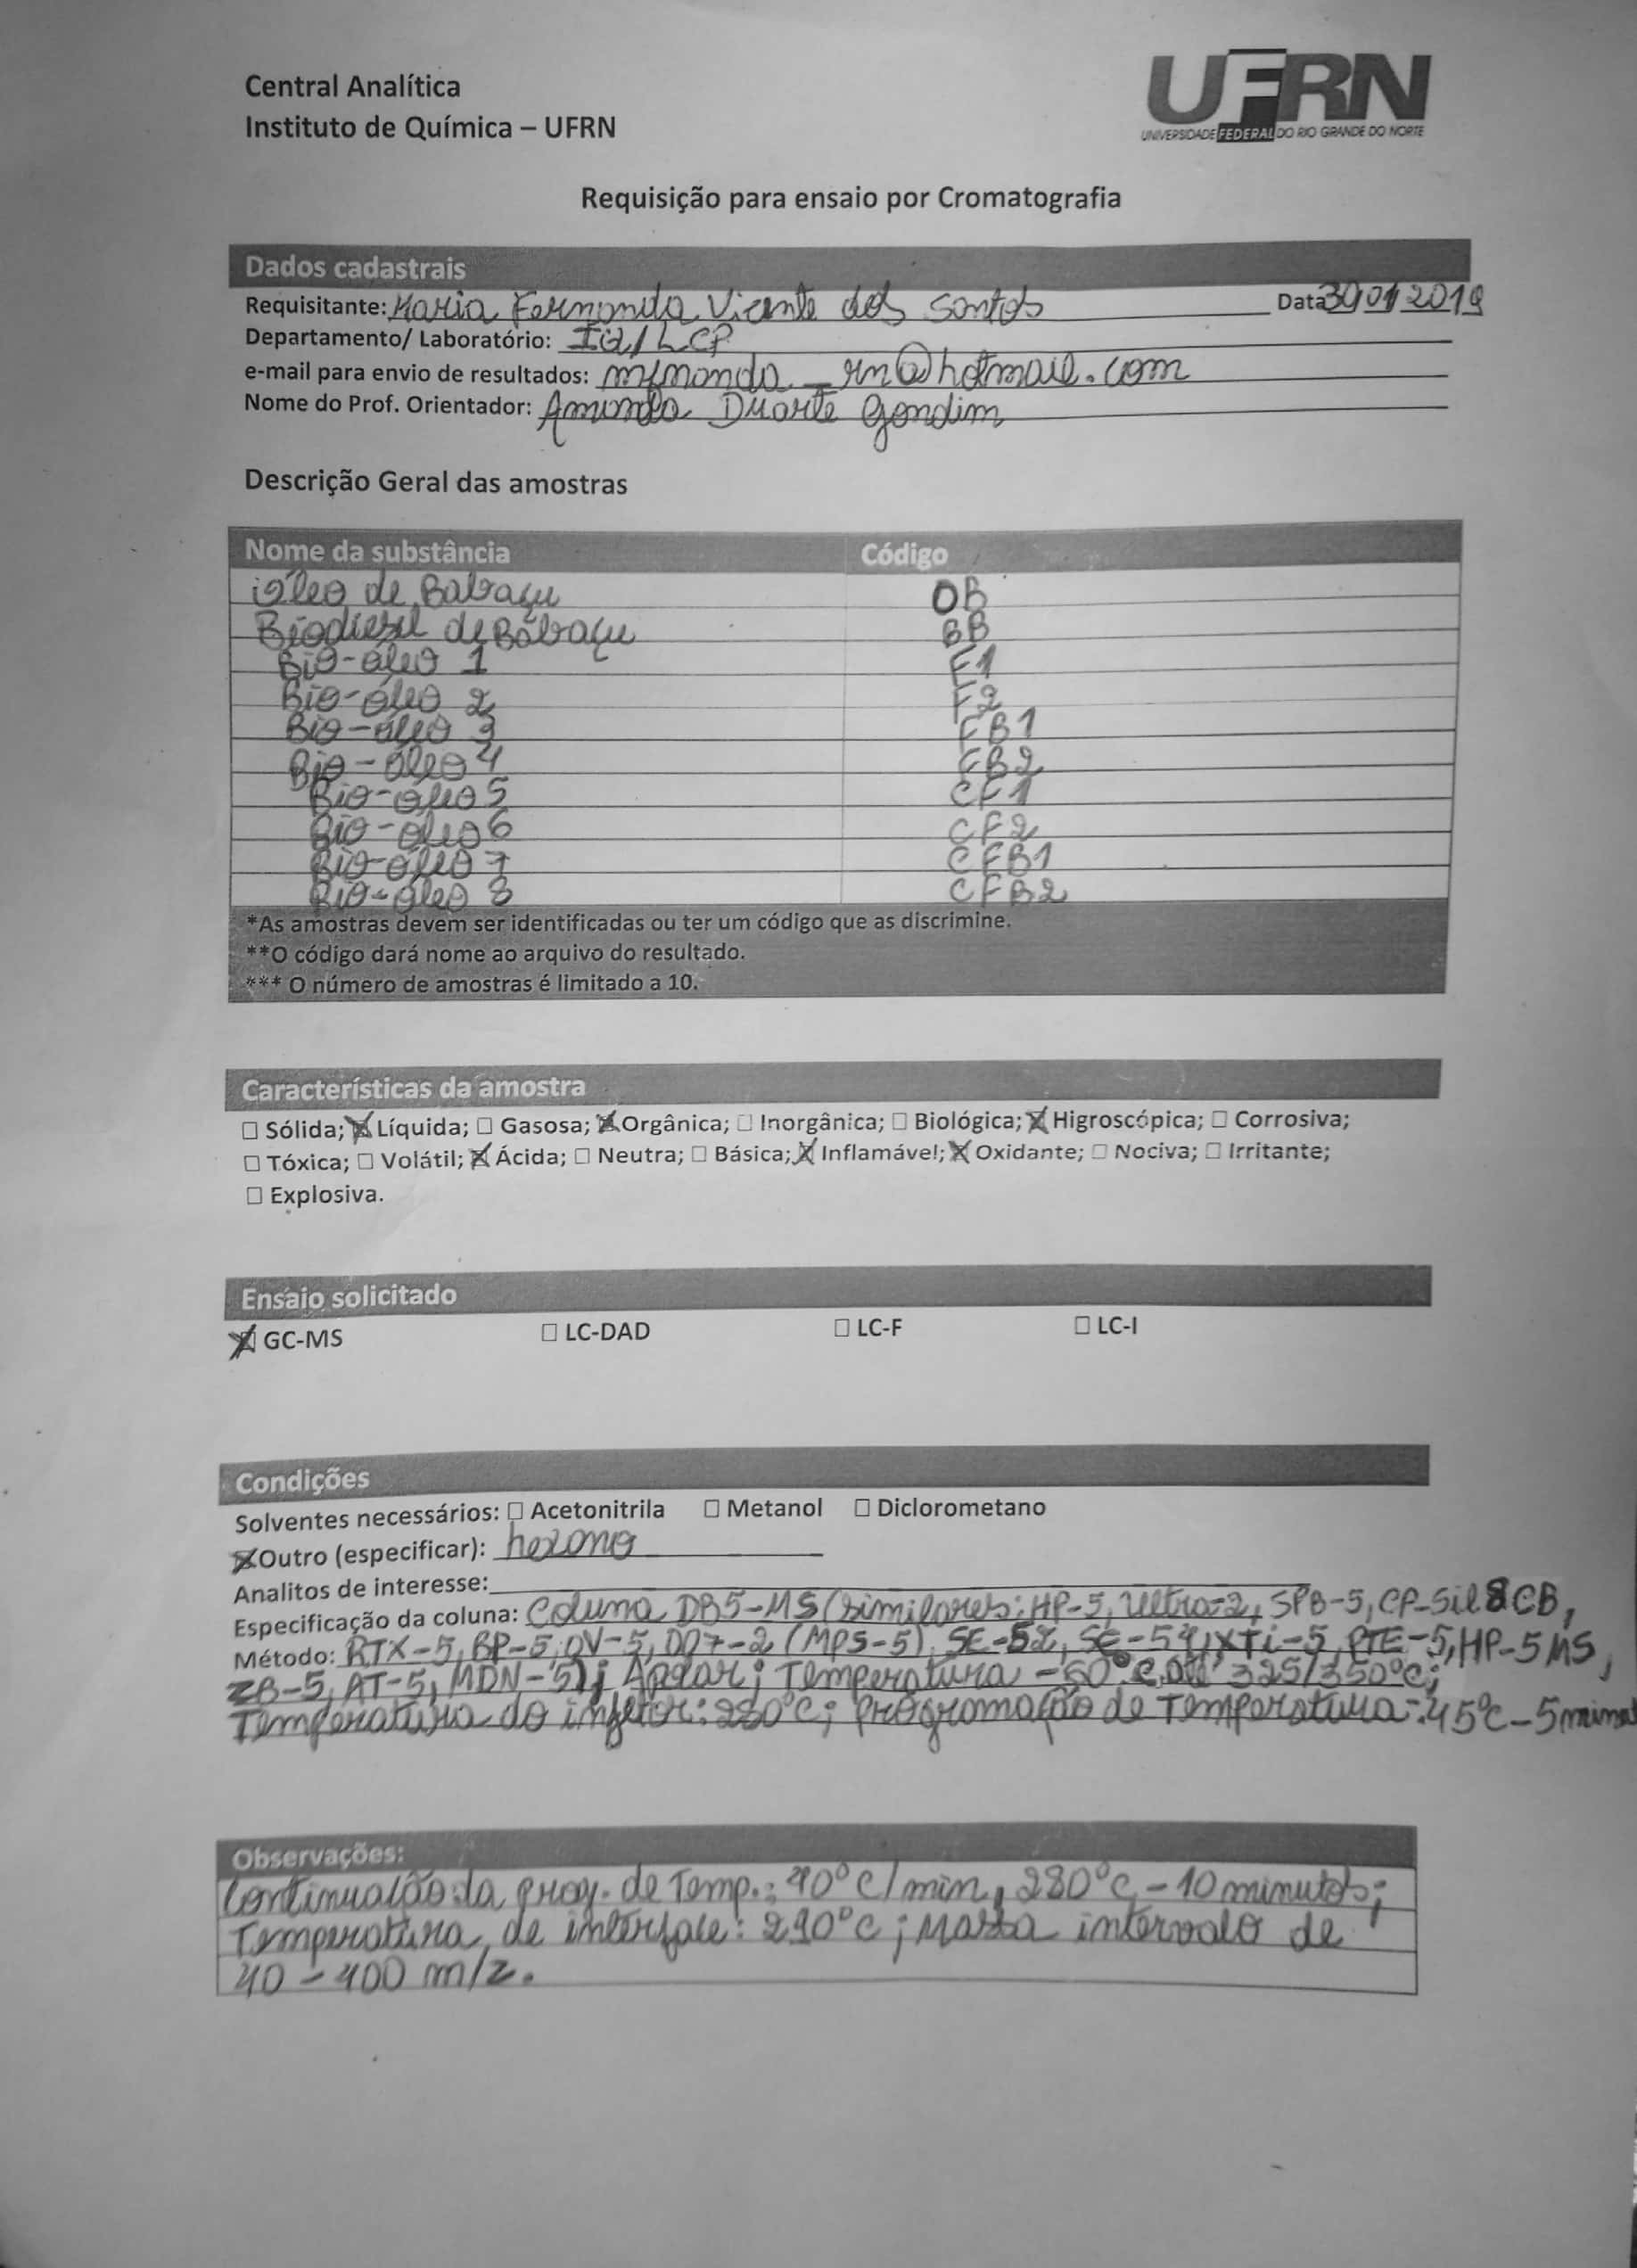 Central Analítica
Instituto de Química – UFRN
UFRN
UNIVERSIDADE FEDERAL DO RIO GRANDE DO NORTE
Requisição para ensaio por Cromatografia
Dados cadastrais
Requisitante: Maria Fernanda Vicente dos Santos Data 30/01/2019
Departamento/ Laboratório: IQ/LCP
e-mail para envio de resultados: mfnanda_rn@hotmail.com
Nome do Prof. Orientador: Amanda Duarte Gondim
Descrição Geral das amostras
Nome da substância Código
Óleo de Babaçu OB
Biodiesel de Babaçu BB
Bio-óleo 1 F1
Bio-óleo 2 F2
Bio-óleo 3 FB1
Bio-óleo 4 FB2
Bio-óleo 5 CF1
Bio-óleo 6 CF2
Bio-óleo 7 CFB1
Bio-óleo 8 CFB2
*As amostras devem ser identificadas ou ter um código que as discrimine.
**O código dará nome ao arquivo do resultado.
*** O número de amostras é limitado a 10.
Características da amostra
☐ Sólida; ☒ Líquida; ☐ Gasosa; ☒ Orgânica; ☐ Inorgânica; ☐ Biológica; ☒ Higroscópica; ☐ Corrosiva;
☐ Tóxica; ☐ Volátil; ☒ Ácida; ☐ Neutra; ☐ Básica; ☒ Inflamável; ☒ Oxidante; ☐ Nociva; ☐ Irritante;
☐ Explosiva.
Ensaio solicitado
☒ GC-MS ☐ LC-DAD ☐ LC-F ☐ LC-I
Condições
Solventes necessários: ☐ Acetonitrila ☐ Metanol ☐ Diclorometano
☒ Outro (especificar): hexano
Analitos de interesse:
Especificação da coluna: Coluna DB5-MS (similares: HP-5, Ultra-2, SPB-5, CP-Sil 8 CB,
Método: RTX-5, BP-5, OV-5, 007-2 (MPS-5), SE-52, SE-54, XTi-5, PTE-5, HP-5 MS,
ZB-5, AT-5, MDN-5); Apolar; Temperatura -60°C até 325/350°C;
Temperatura do injetor: 280°C; Programação de Temperatura: 45°C - 5
Continuação da prog. de Temp.: 40°C/min, 280°C - 10 minutos;
Observações:
Temperatura de interface: 290°C; Massa intervalo de
40 - 400 m/z.